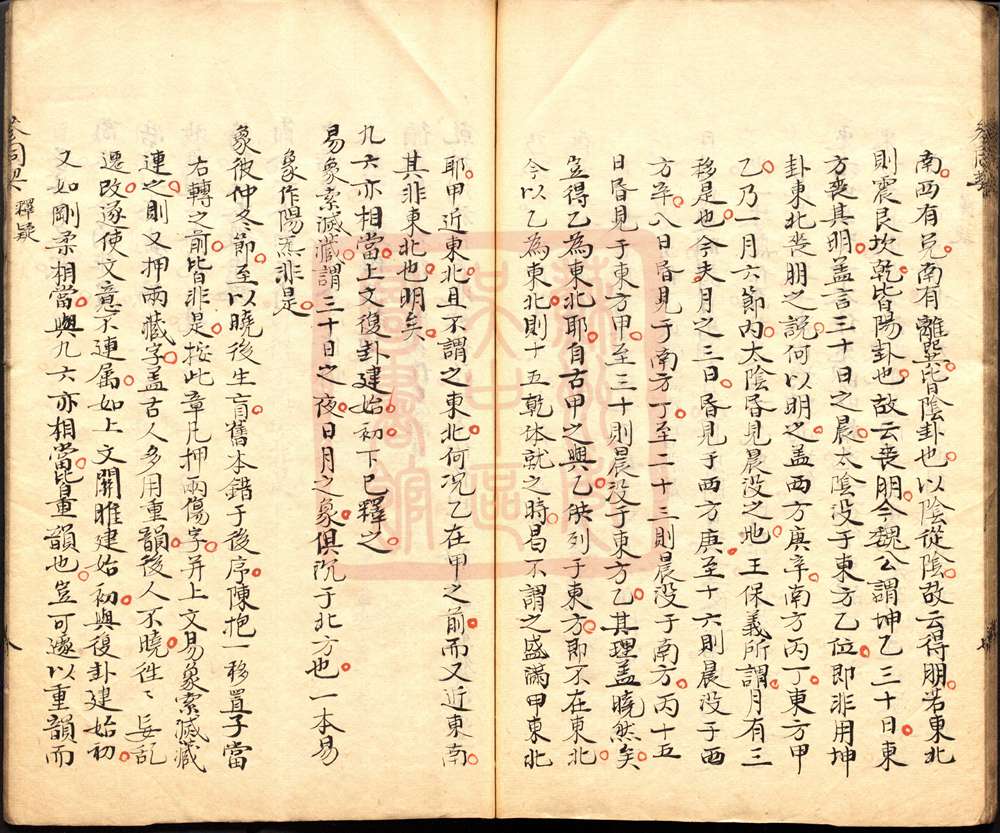 南西有兑南有離巽皆陰卦也以陰從陰故云得朋若東北
則震艮坎乾皆陽卦也故云喪朋今魏公謂坤乙三十日東
方喪其明盖言三十日之晨太陰没于東方乙位即非用坤
卦東北喪朋之説何以明之盖西方庚辛南方丙丁東方甲
乙乃一月六節内太陰昏見晨没之地王保義所謂月有三
移是也今夫月之三日昏見于西方庚至十六則晨没于西
方辛八日昏見于南方丁至二十三則晨没于南方丙十五
日昏見于東方甲至三十則晨没于東方乙其理盖曉然矣
豈得乙為東北耶自古甲之與乙併列于東方即不在東北
今以乙為東北則十五乾体就之時曷不謂之盛滿甲東北
耶甲近東北且不謂之東北何况乙在甲之前而又近東南
其非東北也明矣
九六亦相當上文復卦建始初下已釋之
易象索滅藏謂三十日之夜日月之象俱沉于北方也一本易
象作陽炁非是
象彼仲冬節至以曉後生盲舊本錯于後序陳抱一移置子當
右轉之前皆非是按此章凡押兩傷字并上文易象索滅藏
連之則又押兩藏字盖古人多用重韻後人不曉徃〻妄亂
遷改遂使文意不連属如上文關睢建始初與復卦建始初
又如剛柔相當與九六亦相當皆重韻也豈可遽以重韻而
參同契 釋疑